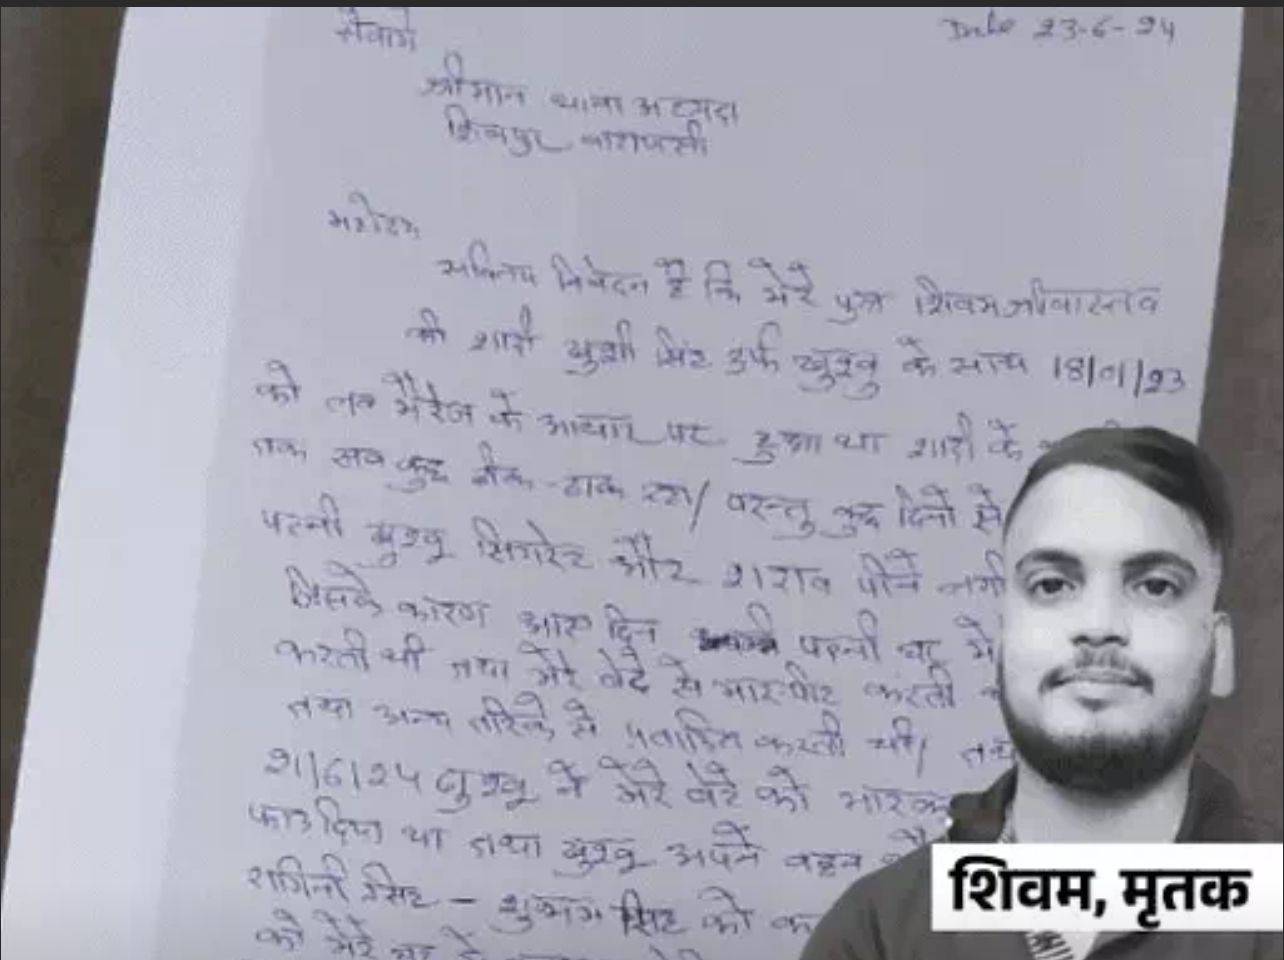 सेवामें
Date 23-6-24
श्रीमान थाना अध्यक्ष
शिवपुर वाराणसी
महोदय
सविनय निवेदन है कि मेरे पुत्र शिवम श्रीवास्तव
की शादी खुशी सिंह उर्फ खुशबु के साथ 18/01/23
को लव मैरेज के आधार पर हुआ था शादी के
तक सब कुछ ठीक-ठाक रहा/ परन्तु कुछ दिनों से
पत्नी खुश्बू सिगरेट और शराब पीने लगी
जिसके कारण आए दिन पत्नी घर में
करती थी तथा मेरे बेटे से मारपीट करती
तथा अन्य तरिके से प्रताडित करती थी/ तथा
21/6/24 खुश्बू ने मेरे बेटे को मारकर
फाड दिया था तथा खुश्बू अपने बहन
रागिनी सिंह - शुभम सिंह को
को मेरे घर
शिवम, मृतक